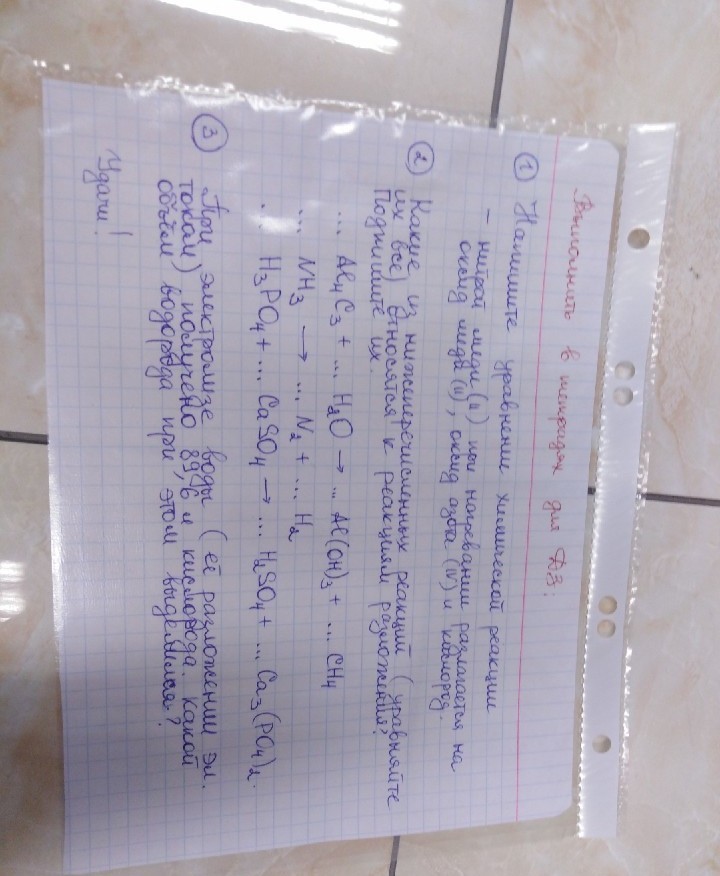 Выполнить в тетрадях для ДЗ:
① Напишите уравнение химической реакции
– нитрат меди (II) при нагревании разлагается на
оксид меди (II), оксид азота (IV) и кислород.
② Какие из нижеперечисленных реакций (уравняйте
их все) относятся к реакциям разложения?
Подпишите их.
... Al4C3 + ... H2O → ... Al(OH)3 + ... CH4
... NH3 → ... N2 + ... H2
... H3PO4 + ... CaSO4 → ... H2SO4 + ... Ca3(PO4)2.
③ При электролизе воды (её разложении эл.
током) получено 89,6 л кислорода. Какой
объём водорода при этом выделился?
Удачи!